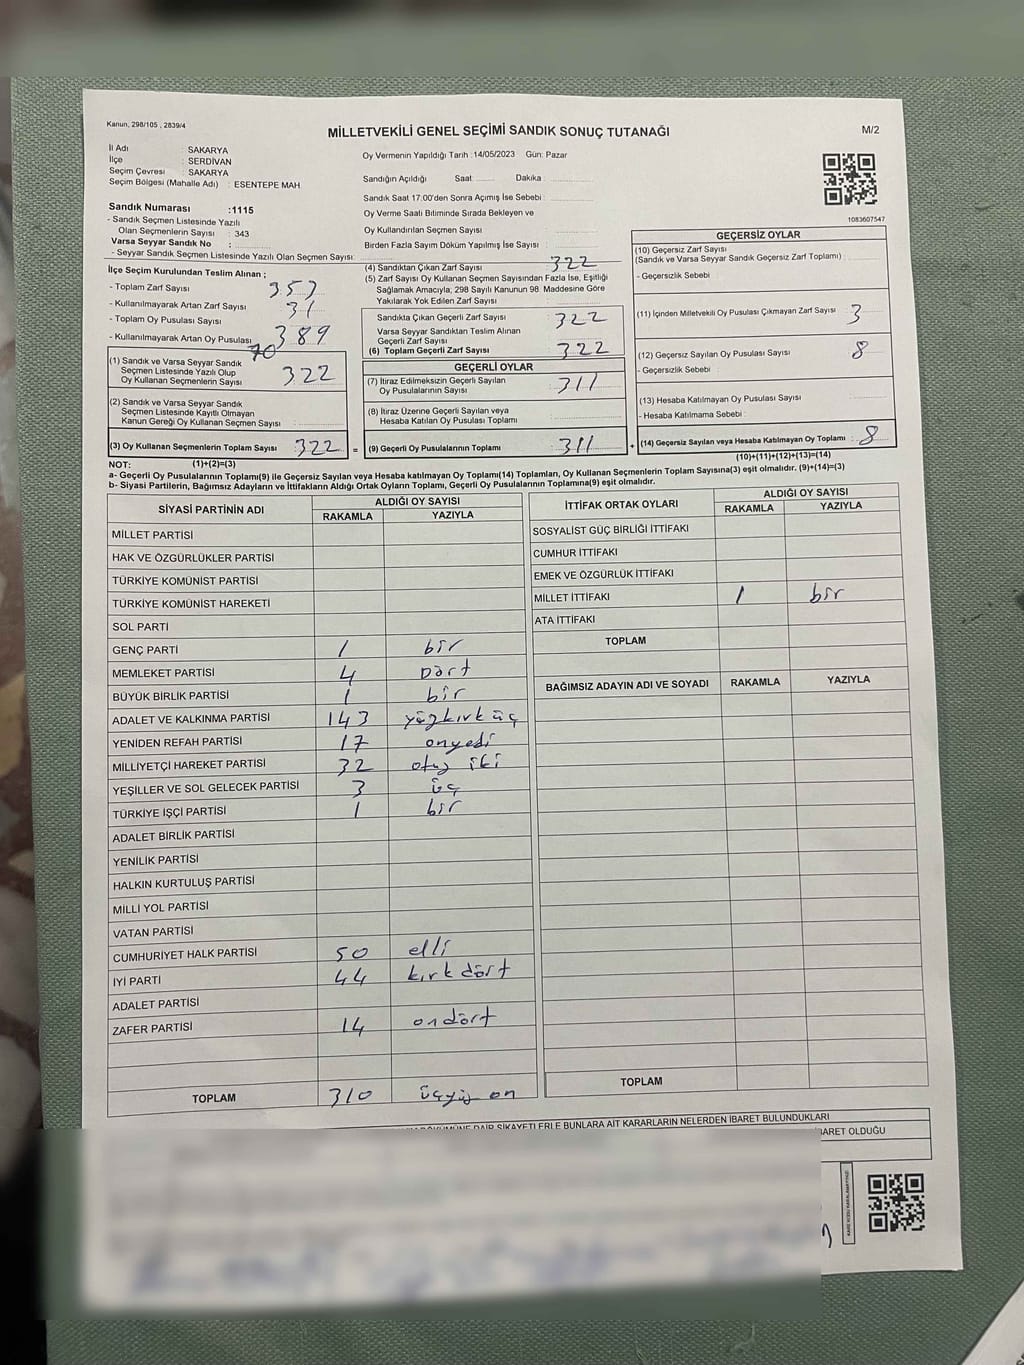 Kanun, 298/105 , 2839/4
MİLLETVEKİLİ GENEL SEÇİMİ SANDIK SONUÇ TUTANAĞI
M/2
İl Adı : SAKARYA
İlçe : SERDİVAN
Seçim Çevresi : SAKARYA
Seçim Bölgesi (Mahalle Adı) : ESENTEPE MAH.
Sandık Numarası :1115
- Sandık Seçmen Listesinde Yazılı
Olan Seçmenlerin Sayısı : 343
Varsa Seyyar Sandık No :
- Seyyar Sandık Seçmen Listesinde Yazılı Olan Seçmen Sayısı
İlçe Seçim Kurulundan Teslim Alınan ;
- Toplam Zarf Sayısı 353
- Kullanılmayarak Artan Zarf Sayısı 31
- Toplam Oy Pusulası Sayısı 389
- Kullanılmayarak Artan Oy Pusulası 70
(1) Sandık ve Varsa Seyyar Sandık
Seçmen Listesinde Yazılı Olup
Oy Kullanan Seçmenlerin Sayısı 322
(2) Sandık ve Varsa Seyyar Sandık
Seçmen Listesinde Kayıtlı Olmayan
Kanun Gereği Oy Kullanan Seçmen Sayısı :
(3) Oy Kullanan Seçmenlerin Toplam Sayısı 322 =
Oy Vermenin Yapıldığı Tarih :14/05/2023 Gün: Pazar
Sandığın Açıldığı Saat: Dakika :
Sandık Saat 17:00'den Sonra Açımış İse Sebebi :
Oy Verme Saati Bitiminde Sırada Bekleyen ve
Oy Kullandırılan Seçmen Sayısı :
Birden Fazla Sayım Döküm Yapılmış İse Sayısı :
(4) Sandıktan Çıkan Zarf Sayısı 322
(5) Zarf Sayısı Oy Kullanan Seçmen Sayısından Fazla İse, Eşitliği
Sağlamak Amacıyla, 298 Sayılı Kanunun 98. Maddesine Göre
Yakılarak Yok Edilen Zarf Sayısı :
Sandıkta Çıkan Geçerli Zarf Sayısı : 322
Varsa Seyyar Sandıktan Teslim Alınan
Geçerli Zarf Sayısı :
(6) Toplam Geçerli Zarf Sayısı : 322
GEÇERLİ OYLAR
(7) İtiraz Edilmeksizin Geçerli Sayılan
Oy Pusulalarının Sayısı : 311
(8) İtiraz Üzerine Geçerli Sayılan veya
Hesaba Katılan Oy Pusulası Toplamı :
(9) Geçerli Oy Pusulalarının Toplamı : 311 +
1083607547
GEÇERSİZ OYLAR
(10) Geçersiz Zarf Sayısı
(Sandık ve Varsa Seyyar Sandık Geçersiz Zarf Toplamı) :
- Geçersizlik Sebebi :
(11) İçinden Milletvekili Oy Pusulası Çıkmayan Zarf Sayısı : 3
(12) Geçersiz Sayılan Oy Pusulası Sayısı : 8
- Geçersizlik Sebebi :
(13) Hesaba Katılmayan Oy Pusulası Sayısı :
- Hesaba Katılmama Sebebi :
(14) Geçersiz Sayılan veya Hesaba Katılmayan Oy Toplamı : 8
NOT: (1)+(2)=(3)
(10)+(11)+(12)+(13)=(14)
a- Geçerli Oy Pusulalarının Toplamı(9) ile Geçersiz Sayılan veya Hesaba katılmayan Oy Toplamı(14) Toplamları, Oy Kullanan Seçmenlerin Toplam Sayısına(3) eşit olmalıdır. (9)+(14)=(3)
b- Siyasi Partilerin, Bağımsız Adayların ve İttifakların Aldığı Ortak Oyların Toplamı, Geçerli Oy Pusulalarının Toplamına(9) eşit olmalıdır.
SİYASİ PARTİNİN ADI ALDIĞI OY SAYISI
RAKAMLA YAZIYLA
MİLLET PARTİSİ
HAK VE ÖZGÜRLÜKLER PARTİSİ
TÜRKİYE KOMÜNİST PARTİSİ
TÜRKİYE KOMÜNİST HAREKETİ
SOL PARTİ
GENÇ PARTİ 1 bir
MEMLEKET PARTİSİ 4 Dört
BÜYÜK BİRLİK PARTİSİ 1 bir
ADALET VE KALKINMA PARTİSİ 143 yüzkırk üç
YENİDEN REFAH PARTİSİ 17 onyedi
MİLLİYETÇİ HAREKET PARTİSİ 32 otuz iki
YEŞİLLER VE SOL GELECEK PARTİSİ 3 üç
TÜRKİYE İŞÇİ PARTİSİ 1 bir
ADALET BİRLİK PARTİSİ
YENİLİK PARTİSİ
HALKIN KURTULUŞ PARTİSİ
MİLLİ YOL PARTİSİ
VATAN PARTİSİ
CUMHURİYET HALK PARTİSİ 50 elli
İYİ PARTİ 44 kırk dört
ADALET PARTİSİ
ZAFER PARTİSİ 14 ondört
TOPLAM 310 üçyüz on
İTTİFAK ORTAK OYLARI ALDIĞI OY SAYISI
RAKAMLA YAZIYLA
SOSYALİST GÜÇ BİRLİĞİ İTTİFAKI
CUMHUR İTTİFAKI
EMEK VE ÖZGÜRLÜK İTTİFAKI
MİLLET İTTİFAKI 1 bir
ATA İTTİFAKI
TOPLAM
BAĞIMSIZ ADAYIN ADI VE SOYADI RAKAMLA YAZIYLA
TOPLAM
DAİR ŞİKAYETLERLE BUNLARA AİT KARARLARIN NELERDEN İBARET BULUNDUKLARI
OLDUĞU